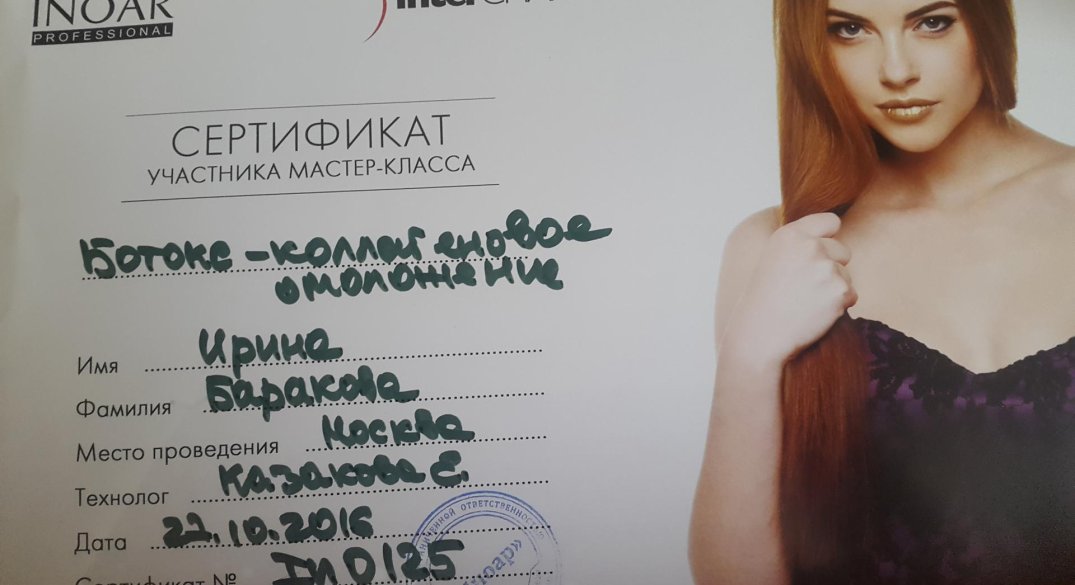 INOAR
PROFESSIONAL
СЕРТИФИКАТ
УЧАСТНИКА МАСТЕР-КЛАССА
Ботокс - коллагеновое
омоложение
Имя Ирина
Фамилия Баракова
Место проведения Москва
Технолог Казакова Е.
Дата 22.10.2016
Сертификат №